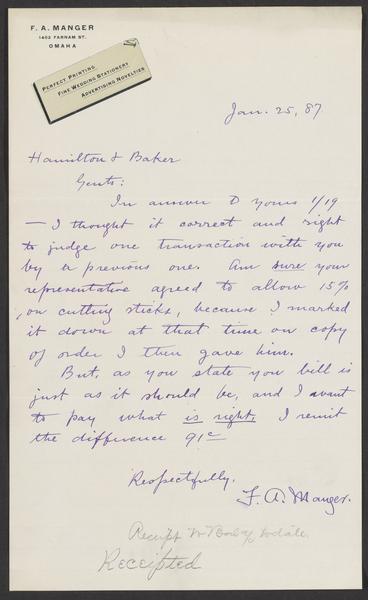 F. A. MANGER
1402 FARNAM ST.
OMAHA
PERFECT PRINTING
FINE WEDDING STATIONERY
ADVERTISING NOVELTIES
Jan. 25, 87
Hamilton & Baker
Gents:
In answer to yours 1/19
– I thought it correct and right
to judge one transaction with you
by a previous one. Am sure your
representative agreed to allow 15%
on cutting sticks, because I marked
it down at that time on copy
of order I then gave him.
But, as you state you bill is
just as it should be, and I want
to pay what is right, I remit
the difference 91c
Respectfully,
F. A. Manger.
Receipt
Receipted